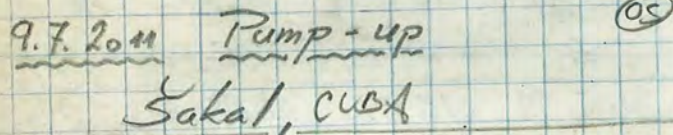 9.7.2011 Pump-up 05
Šakal, CUBA